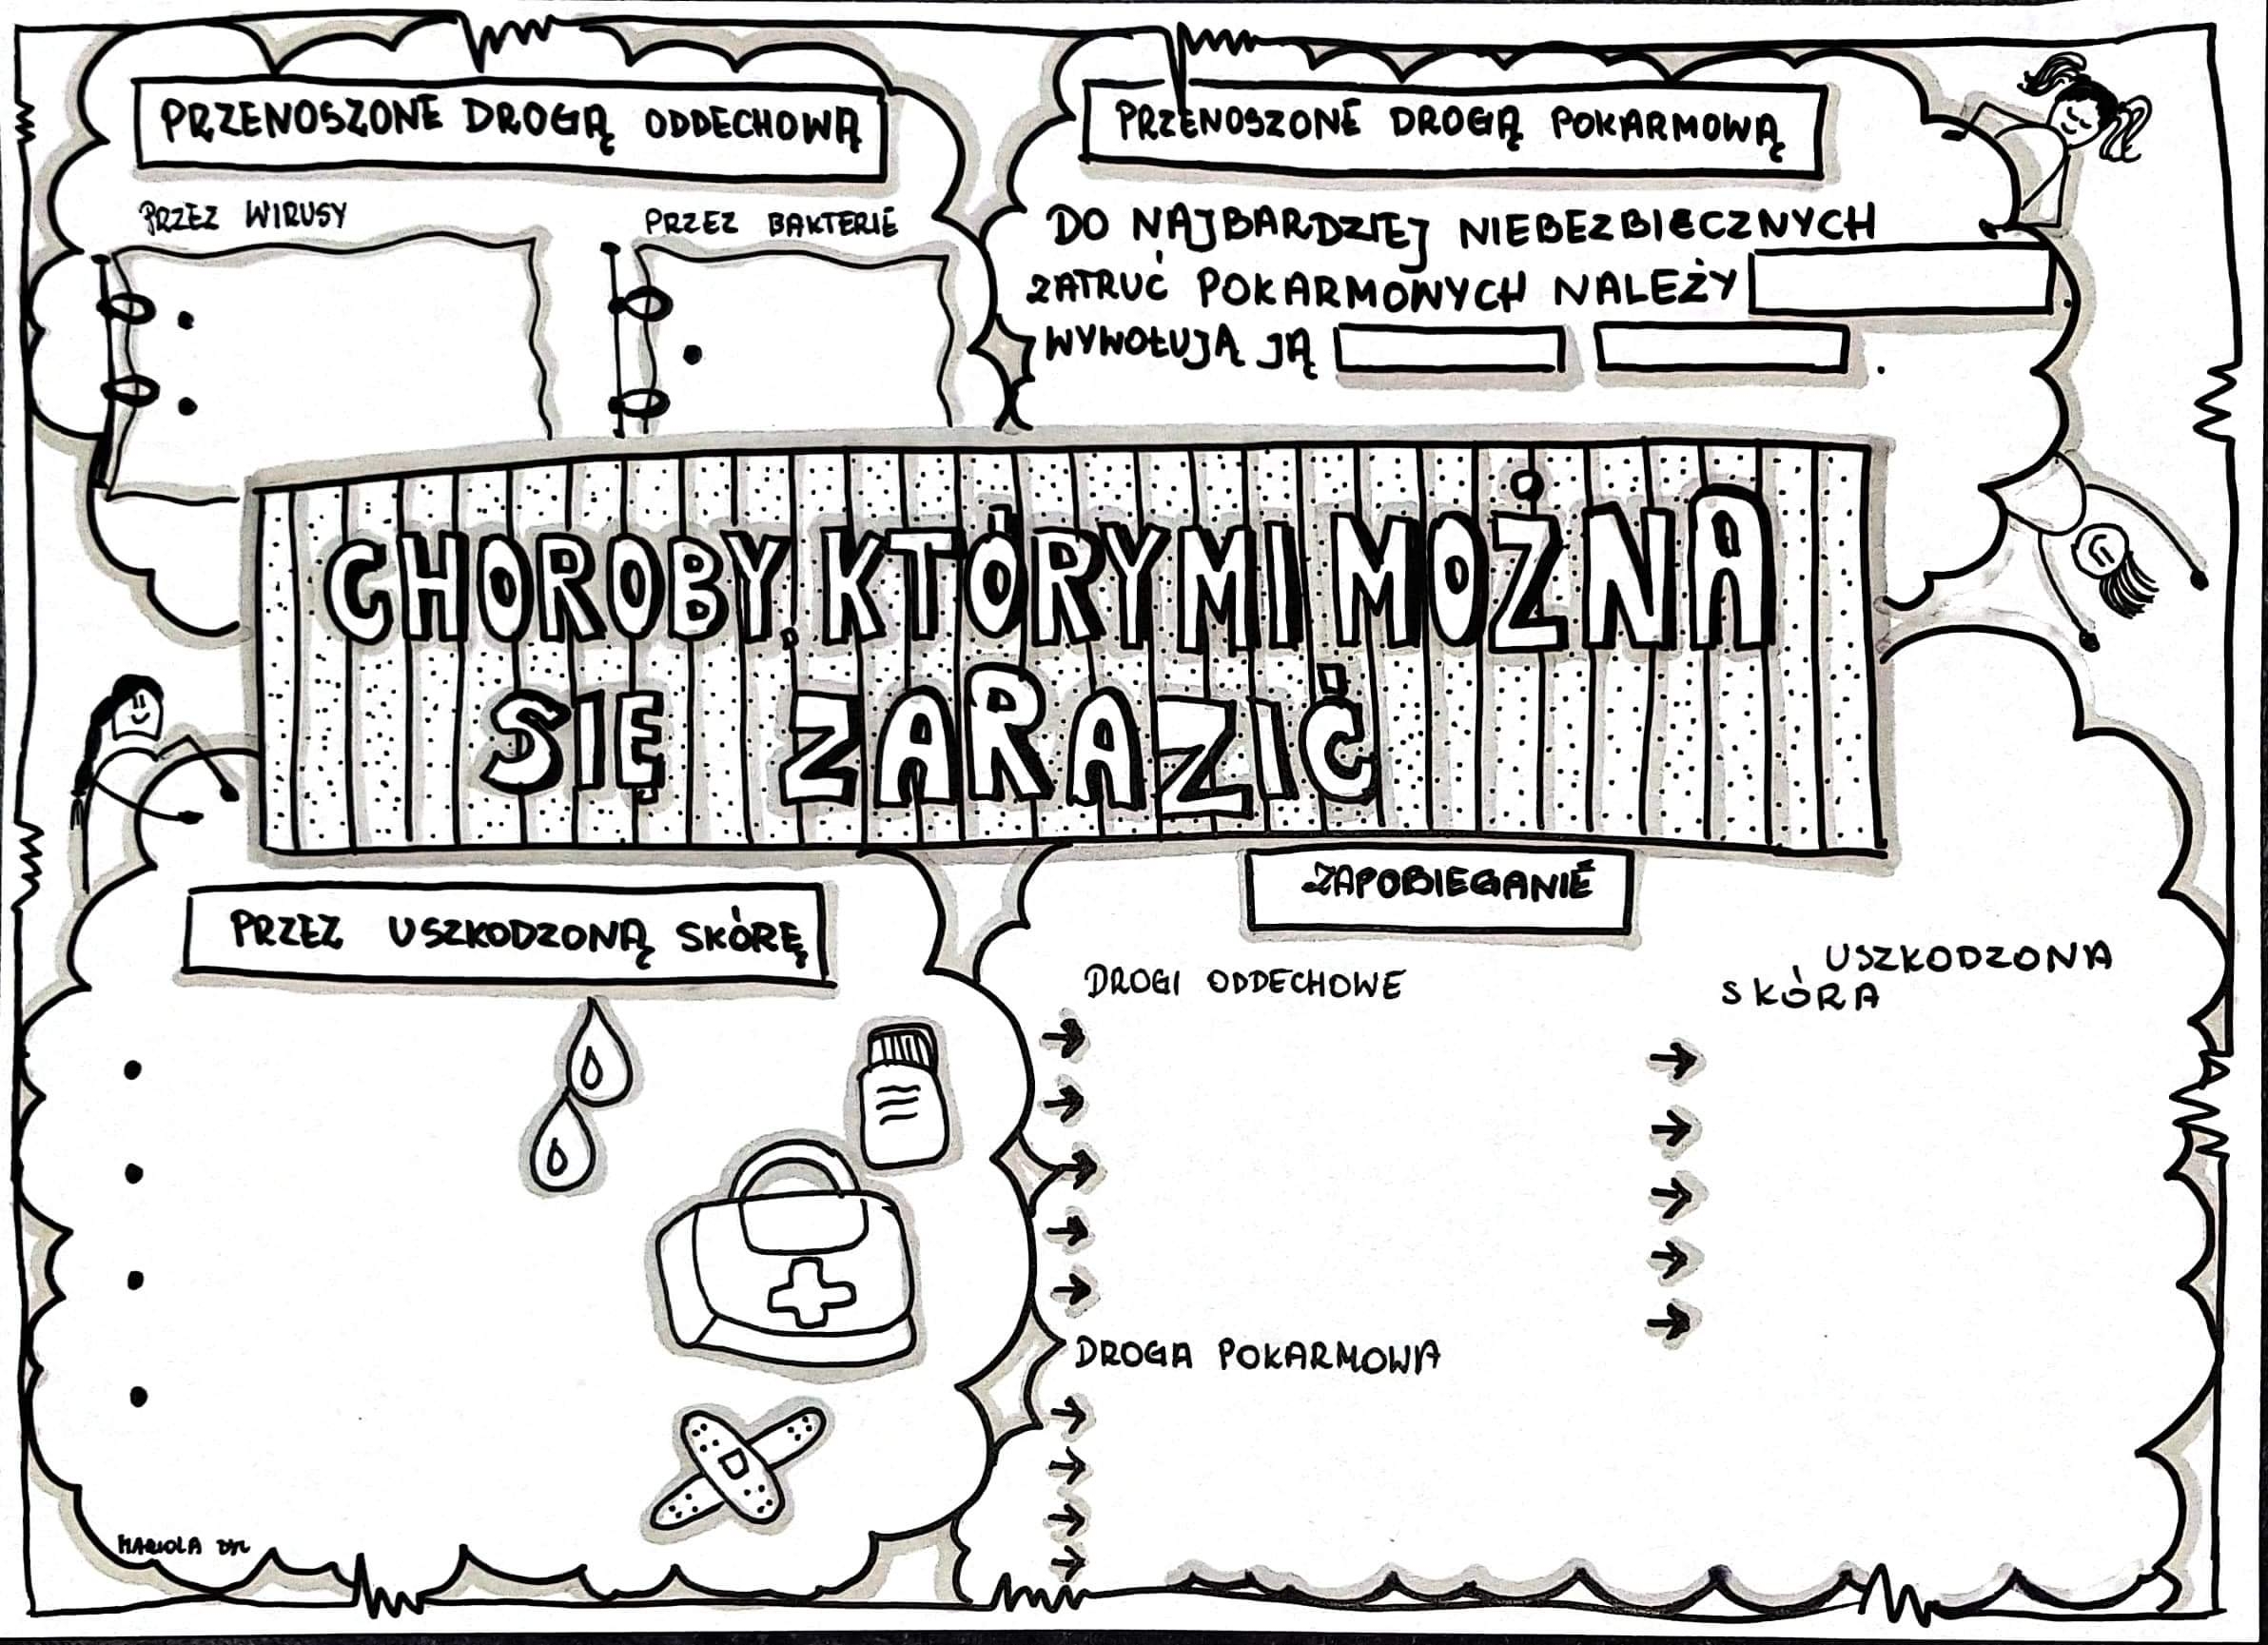 PRZENOSZONE DROGĄ ODDECHOWĄ
PRZEZ WIRUSY
PRZEZ BAKTERIE
PRZENOSZONE DROGĄ POKARMOWĄ
DO NAJBARDZIEJ NIEBEZBIECZNYCH
ZATRUĆ POKARMOWYCH NALEŻY
WYWOŁUJĄ JĄ .
CHOROBY, KTÓRYMI MOŻNA
SIĘ ZARAZIĆ
PRZEZ USZKODZONĄ SKÓRĘ
ZAPOBIEGANIE
DROGI ODDECHOWE
USZKODZONA
SKÓRA
DROGA POKARMOWA
MARIOLA DYL